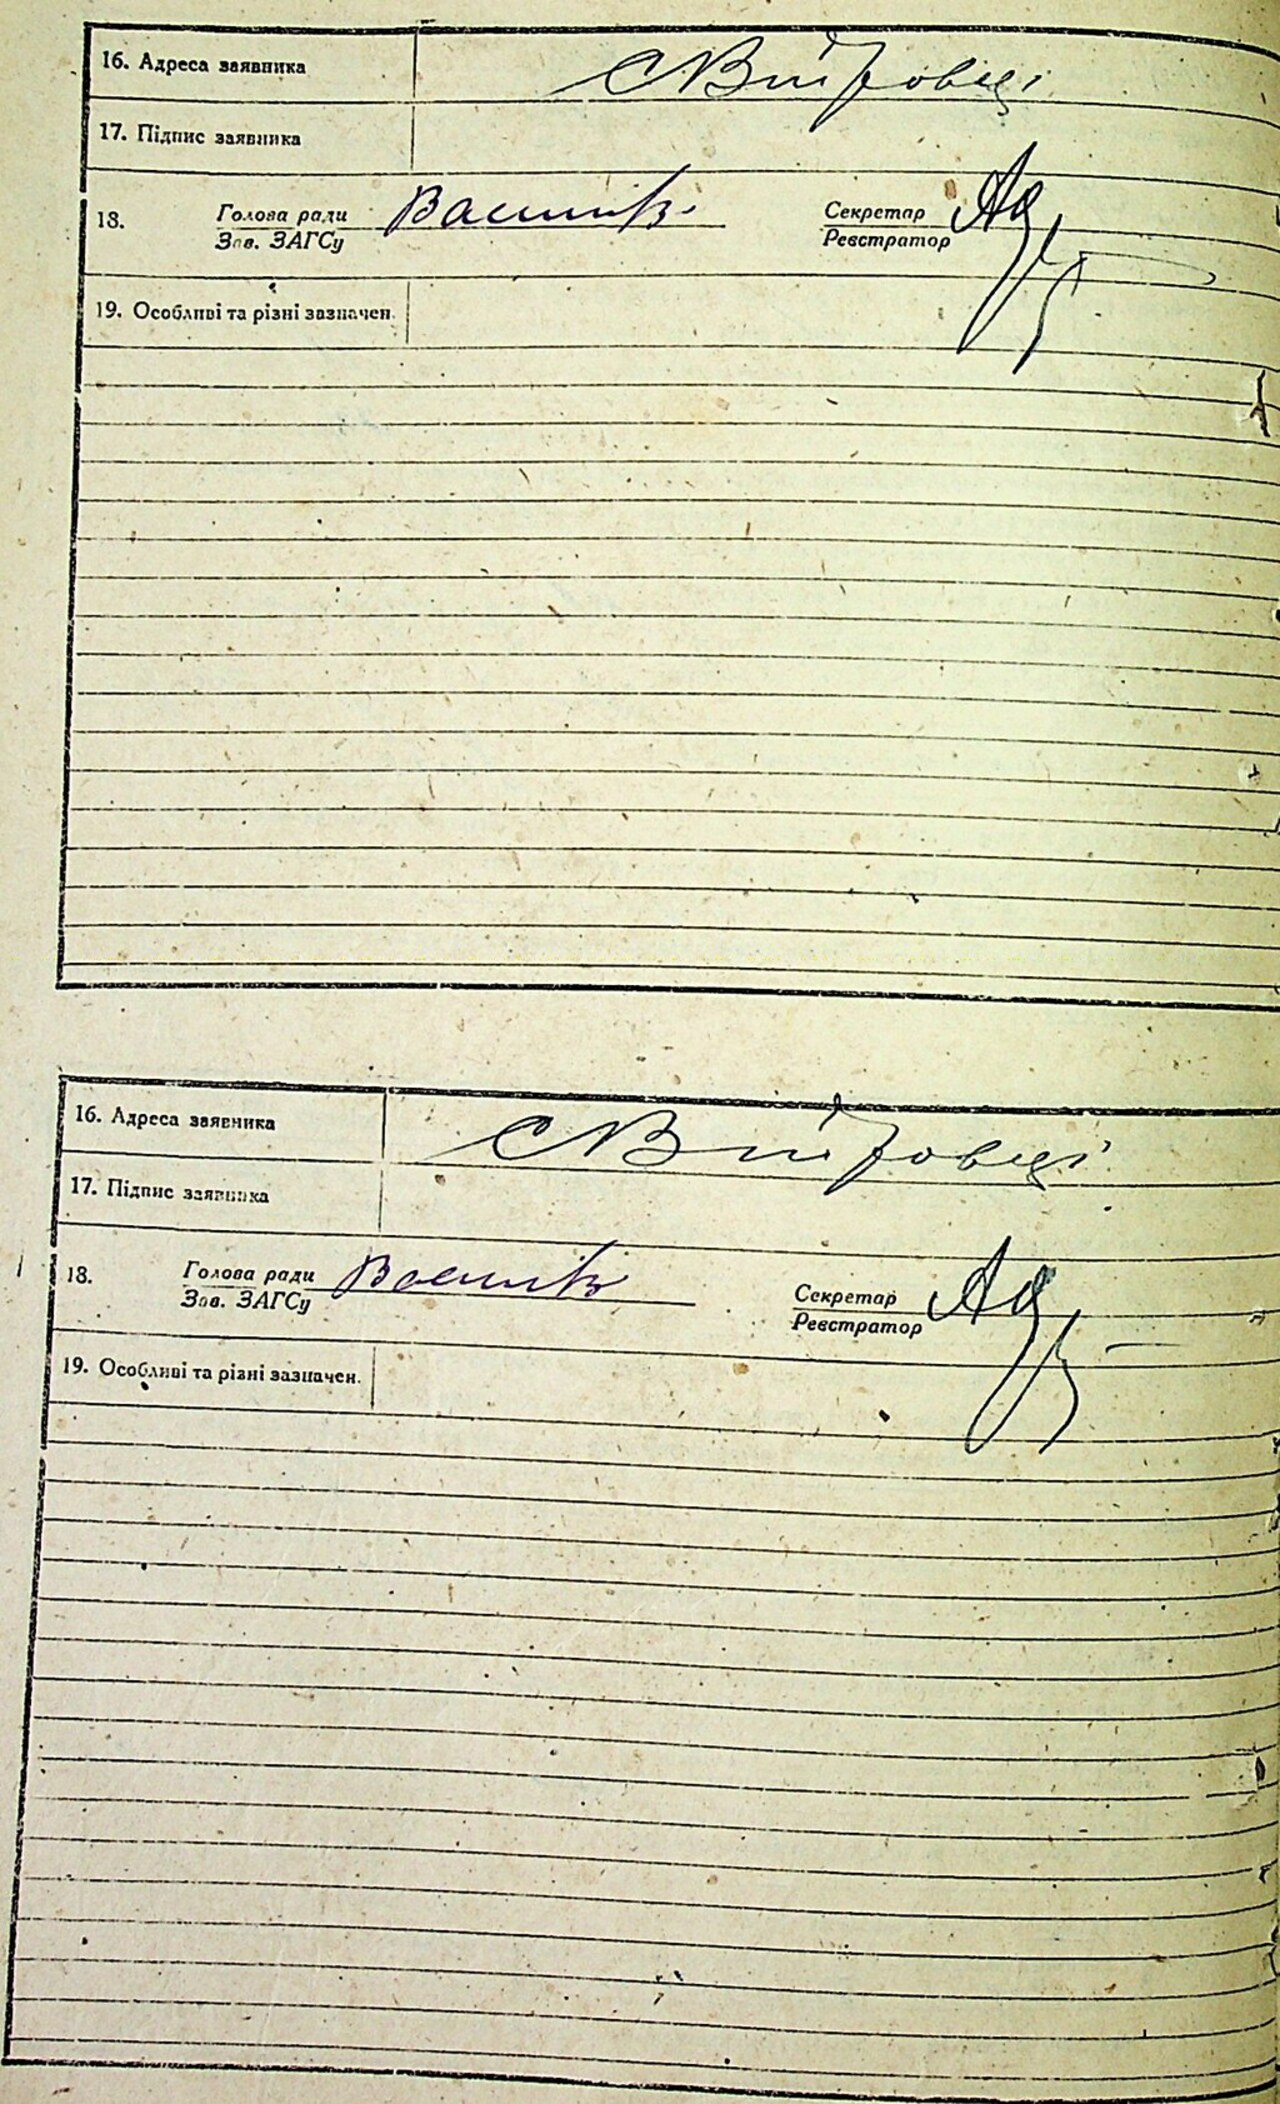 16. Адреса заявника с Вітровці
17. Підпис заявника
18. Голова ради Секретар
Зав. ЗАГСу Реєстратор
19. Особливі та різні зазначен.
16. Адреса заявника с Вітровці
17. Підпис заявника
18. Голова ради Секретар
Зав. ЗАГСу Реєстратор
19. Особливі та різні зазначен.